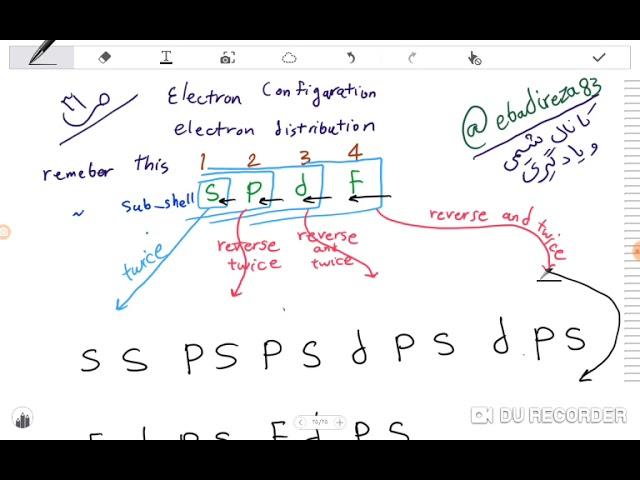 Electron Configaration
electron distribution
@ebadireza83
کانال شیمی
و یادگیری
remeber this
1 2 3 4
~ sub_shell
S P d F
twice
reverse twice
reverse and twice
reverse and twice
S S P S P S d P S d P S
F d P S F d P S
10/10
DU RECORDER